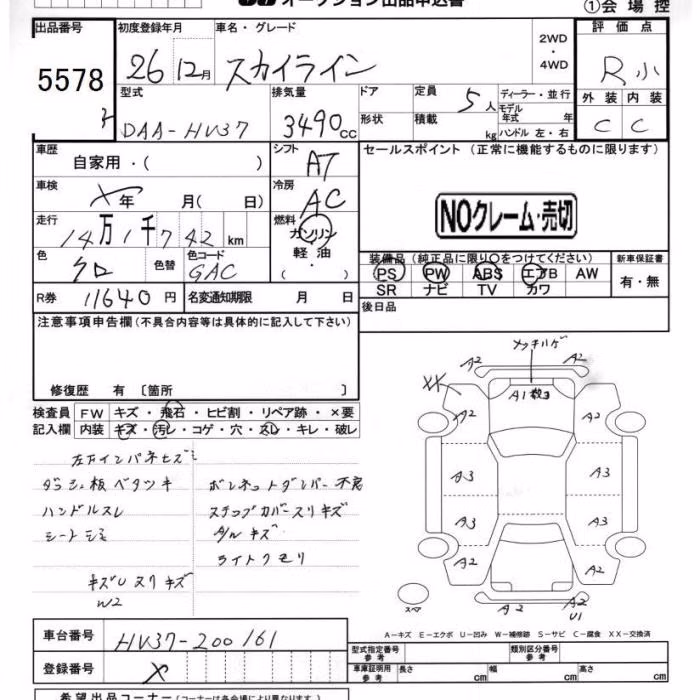 オークション出品申込書 ①会場控
出品番号 初度登録年月 車名・グレード 2WD・4WD 評価点
5578 26 12月 スカイライン R小
型式 排気量 ドア 定員 5人 ディーラー・並行 外装 内装
DAA-HV37 3490cc 形状 積載 kg モデル年式 年 C C
ハンドル 左・右
車歴 自家用・( ) シフト AT セールスポイント (正常に機能するものに限ります)
車検 年 月( 日) 冷房 AC
NOクレーム・売切
走行 14万1千742km 燃料 ガソリン
軽油・
色 クロ 色替 色コード GAC 装備品 (純正品に限り○をつけてください) 新車保証書
PS PW ABS エアB AW 有・無
R券 11640円 名変通知期限 月 日 SR ナビ TV カワ
注意事項申告欄(不具合内容等は具体的に記入して下さい) 後日品
メッキハゲ
A2 A2
XX A1 数コ
修復歴 有〔箇所 〕
検査員 FW キズ・飛石・ヒビ割・リペア跡・×要 A2 A2
記入欄 内装 キズ・汚レ・コゲ・穴・スレ・キレ・破レ
左下インパネヒズミ
ダッシュ板ベタツキ ボンネットダンパー不良 A3 A3
ハンドルスレ ステップカバースリキズ
シートシミ A/Wキズ A3 A3
ライトクモリ
A2 A2
キズUスリキズ
W2 スペア A2 A2
U1
A－キズ E－エクボ U－凹み W－補修跡 S－サビ C－腐食 XX－交換済
車台番号 HV37-200161
型式指定番号 参考 類別区分番号 参考
登録番号 × 車庫証明用 参考 長さ cm 幅 cm 高さ cm
希望出品コーナー (コーナーは各会場により異なります)